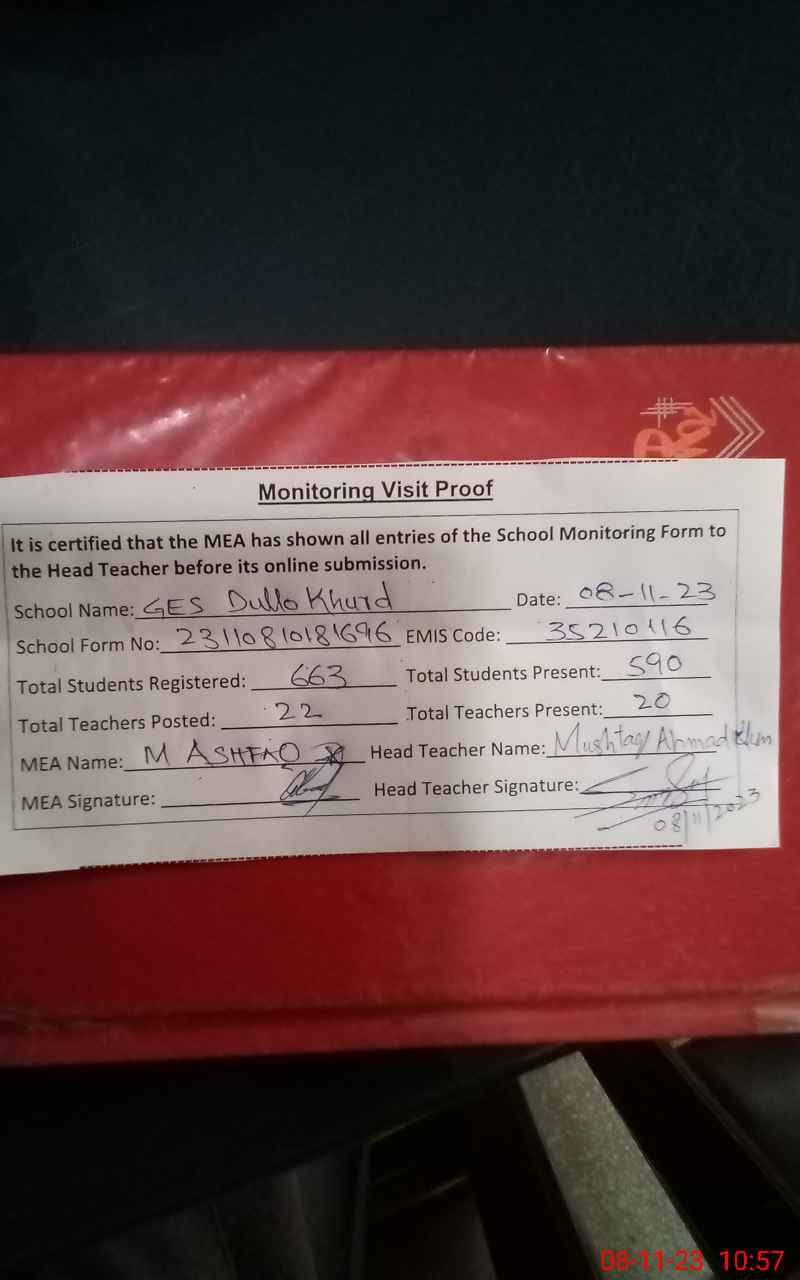 Monitoring Visit Proof
It is certified that the MEA has shown all entries of the School Monitoring Form to
the Head Teacher before its online submission.
School Name: GES Dullo Khurd Date: 08-11-23
School Form No: 23110810181696 EMIS Code: 35210116
Total Students Registered: 663 Total Students Present: 590
Total Teachers Posted: 22 Total Teachers Present: 20
MEA Name: M ASHFAQ Head Teacher Name: Mushtaq Ahmad
MEA Signature: Head Teacher Signature:
08/11/2023
08-11-23 10:57